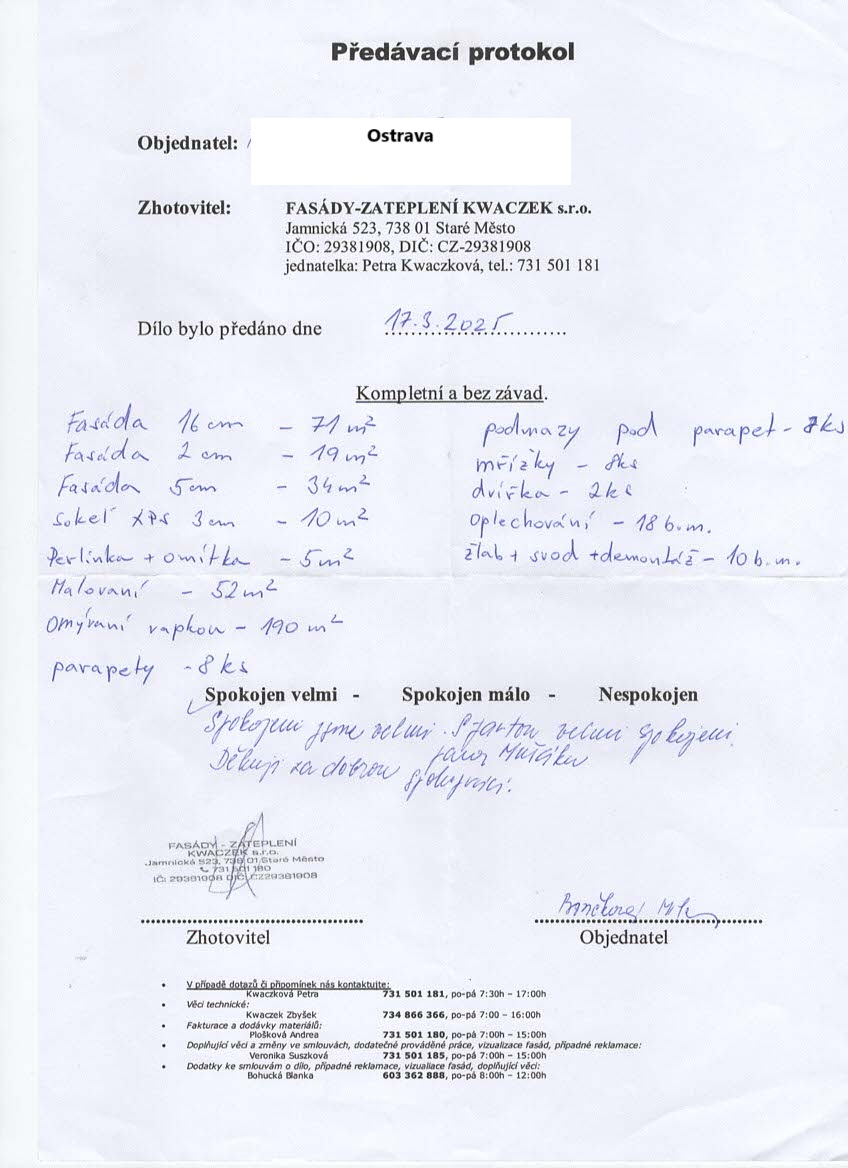 Předávací protokol
Objednatel:
Ostrava
Zhotovitel:
FASÁDY-ZATEPLENÍ KWACZEK s.r.o.
Jamnická 523, 738 01 Staré Město
IČO: 29381908, DIČ: CZ-29381908
jednatelka: Petra Kwaczková, tel.: 731 501 181
Dílo bylo předáno dne 17.3.2025
Kompletní a bez závad.
Fasáda 16 cm - 71 m²
Fasáda 2 cm - 19 m²
Fasáda 5cm - 34 m²
sokel XPS 3cm - 10 m²
Perlinka + omítka - 5m²
Malovaní - 52 m²
Omývaní vapkou - 190 m²
parapety - 8 ks
podmazy pod parapet - 8ks
mřížky - 8ks
dvířka - 2ks
Oplechování - 18 b.m.
žlab + svod + demontáž - 10 b.m.
Spokojen velmi - Spokojen málo - Nespokojen
Spokojeni jsme velmi. S partou velmi spokojeni.
Děkuji za dobrou
spolupráci.
FASÁDY - ZATEPLENÍ
KWACZEK s.r.o.
Jamnická 523, 738 01 Staré Město
731 501 180
IČ: 29381908 DIČ: CZ29381908
Zhotovitel
Objednatel
V případě dotazů či připomínek nás kontaktujte:
Kwaczková Petra 731 501 181, po-pá 7:30h – 17:00h
Věci technické:
Kwaczek Zbyšek 734 866 366, po-pá 7:00 – 16:00h
Fakturace a dodávky materiálů:
Plošková Andrea 731 501 180, po-pá 7:00h – 15:00h
Doplňující věci a změny ve smlouvách, dodatečné prováděné práce, vizualizace fasád, případné reklamace:
Veronika Suszková 731 501 185, po-pá 7:00h – 15:00h
Dodatky ke smlouvám o dílo, případné reklamace, vizualiace fasád, doplňující věci:
Bohucká Blanka 603 362 888, po-pá 8:00h – 12:00h